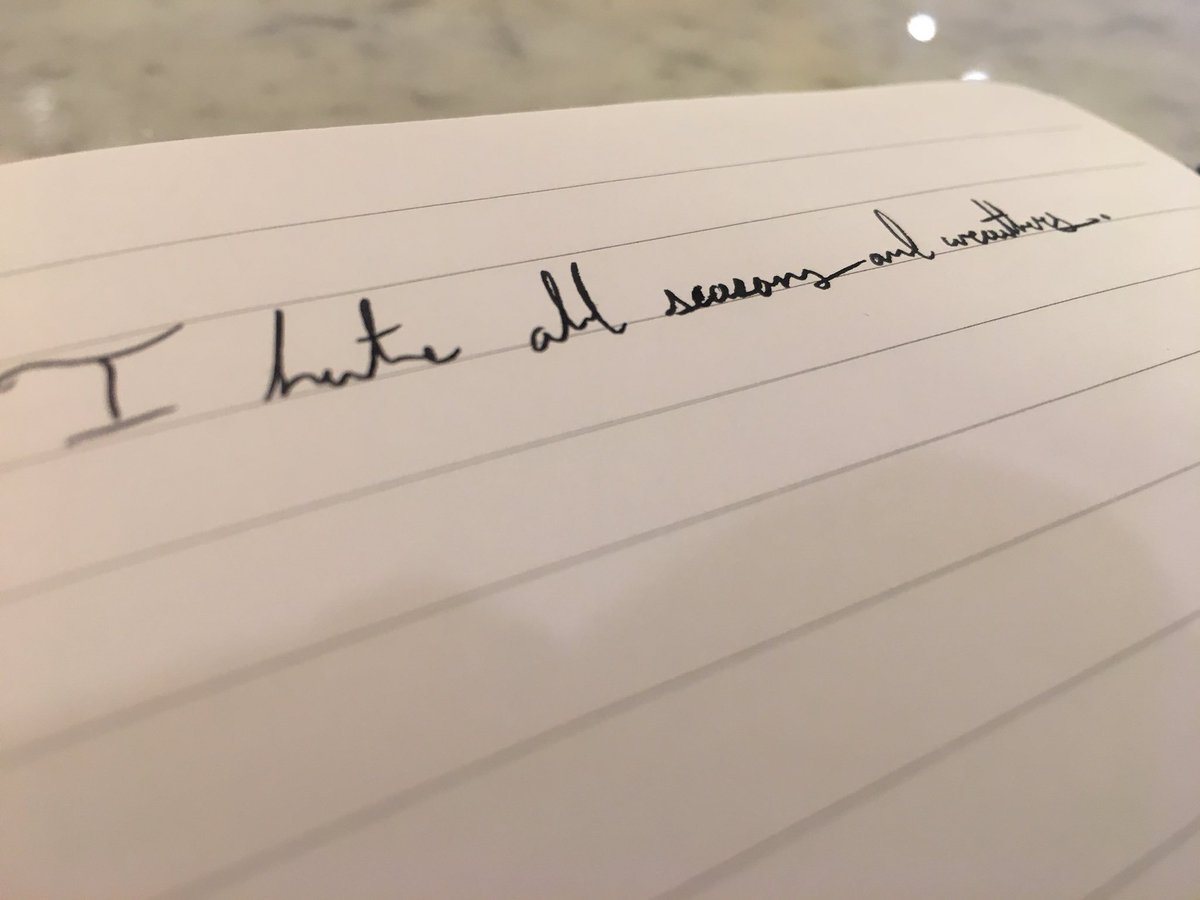 I hate all seasons and weathers.